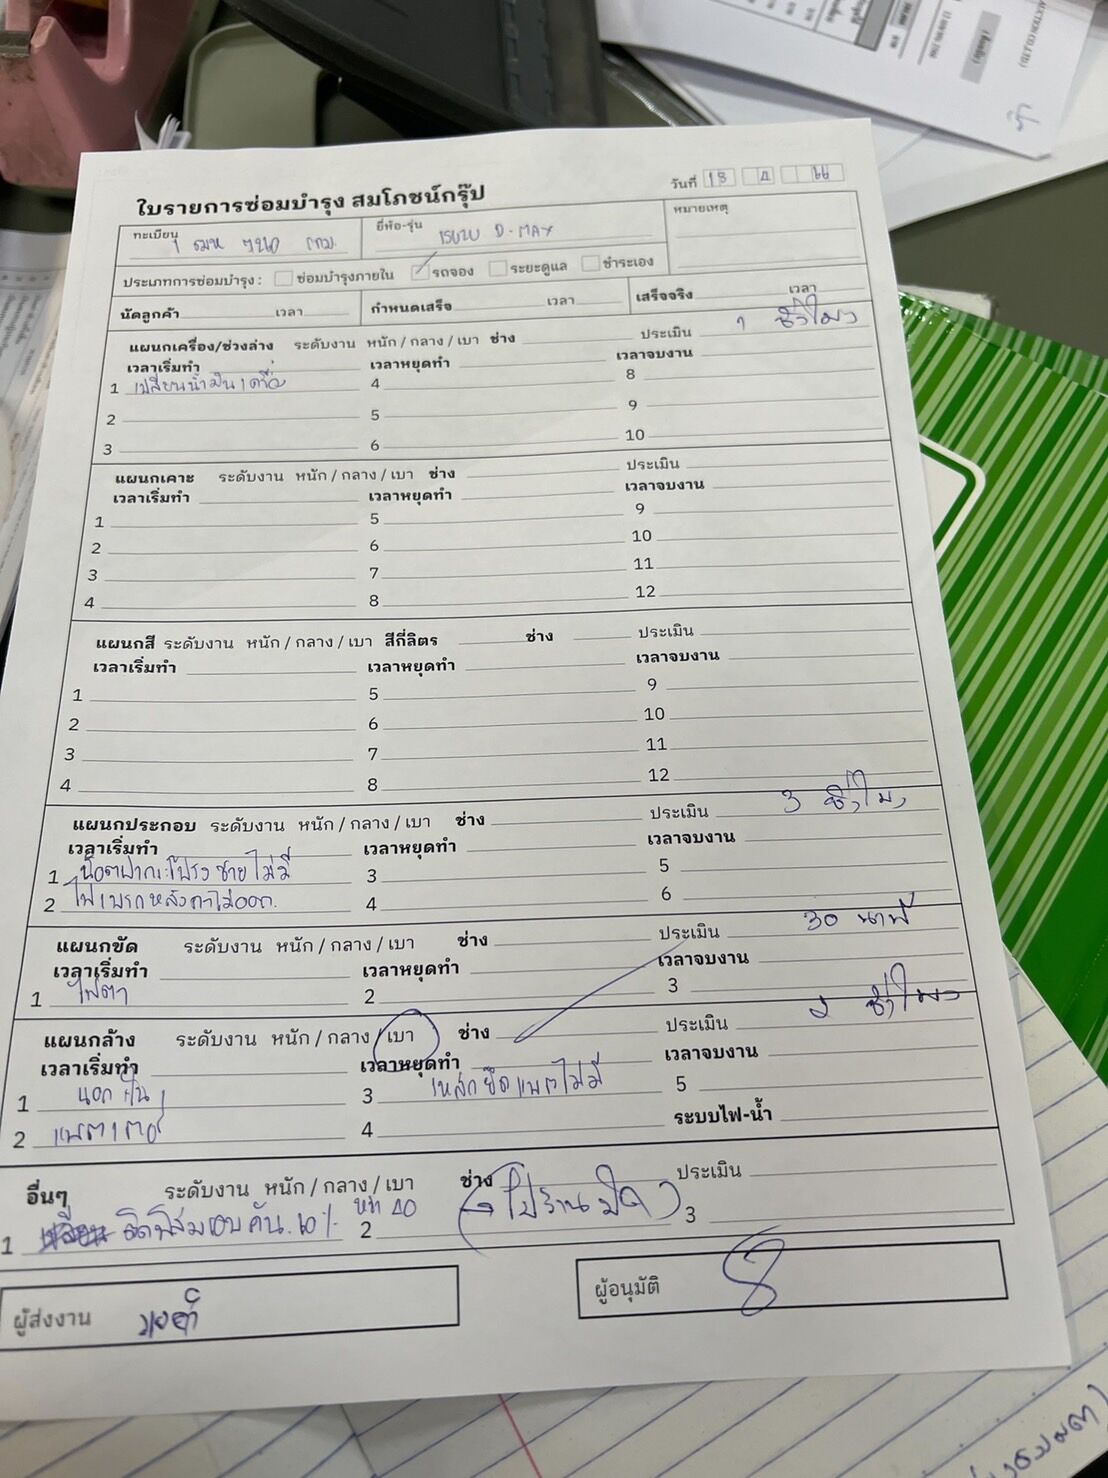 ใบรายการซ่อมบำรุง สมโภชน์กรุ๊ป
วันที่ 13 66
ทะเบียน 1 กทม.
ยี่ห้อ-รุ่น ISUZU D-MAX
หมายเหตุ
ประเภทการซ่อมบำรุง : ซ่อมบำรุงภายใน รถจอง ระยะดูแล ชำระเอง
นัดลูกค้า เวลา กำหนดเสร็จ เวลา เสร็จจริง เวลา
แผนกเครื่อง/ช่วงล่าง ระดับงาน หนัก / กลาง / เบา ช่าง ประเมิน 1 ชั่วโมง
เวลาเริ่มทำ เวลาหยุดทำ เวลาจบงาน
1 เปลี่ยนน้ำมันเครื่อง 4 8
2 5 9
3 6 10
แผนกเคาะ ระดับงาน หนัก / กลาง / เบา ช่าง ประเมิน
เวลาเริ่มทำ เวลาหยุดทำ เวลาจบงาน
1 5 9
2 6 10
3 7 11
4 8 12
แผนกสี ระดับงาน หนัก / กลาง / เบา สีกี่ลิตร ช่าง ประเมิน
เวลาเริ่มทำ เวลาหยุดทำ เวลาจบงาน
1 5 9
2 6 10
3 7 11
4 8 12
แผนกประกอบ ระดับงาน หนัก / กลาง / เบา ช่าง ประเมิน 3 ชั่วโมง
เวลาเริ่มทำ เวลาหยุดทำ เวลาจบงาน
1 น็อตฝากะโปรงซ้ายไม่มี 3 5
2 ไฟเบรกหลังคาไม่ออก 4 6
แผนกขัด ระดับงาน หนัก / กลาง / เบา ช่าง ประเมิน 30 นาที
เวลาเริ่มทำ เวลาหยุดทำ เวลาจบงาน
1 ไฟตา 2 3
แผนกล้าง ระดับงาน หนัก / กลาง / เบา ช่าง ประเมิน 2 ชั่วโมง
เวลาเริ่มทำ เวลาหยุดทำ เวลาจบงาน
1 นอก ใน 3 เหล็กยึดแบตไม่มี 5
2 แบตเตอรี่ 4 ระบบไฟ-น้ำ
อื่นๆ ระดับงาน หนัก / กลาง / เบา ช่าง ประเมิน
1 ติดฟิล์มรอบคัน 60% หน้า 40 2 (ไปร้าน) 3
ผู้ส่งงาน
ผู้อนุมัติ